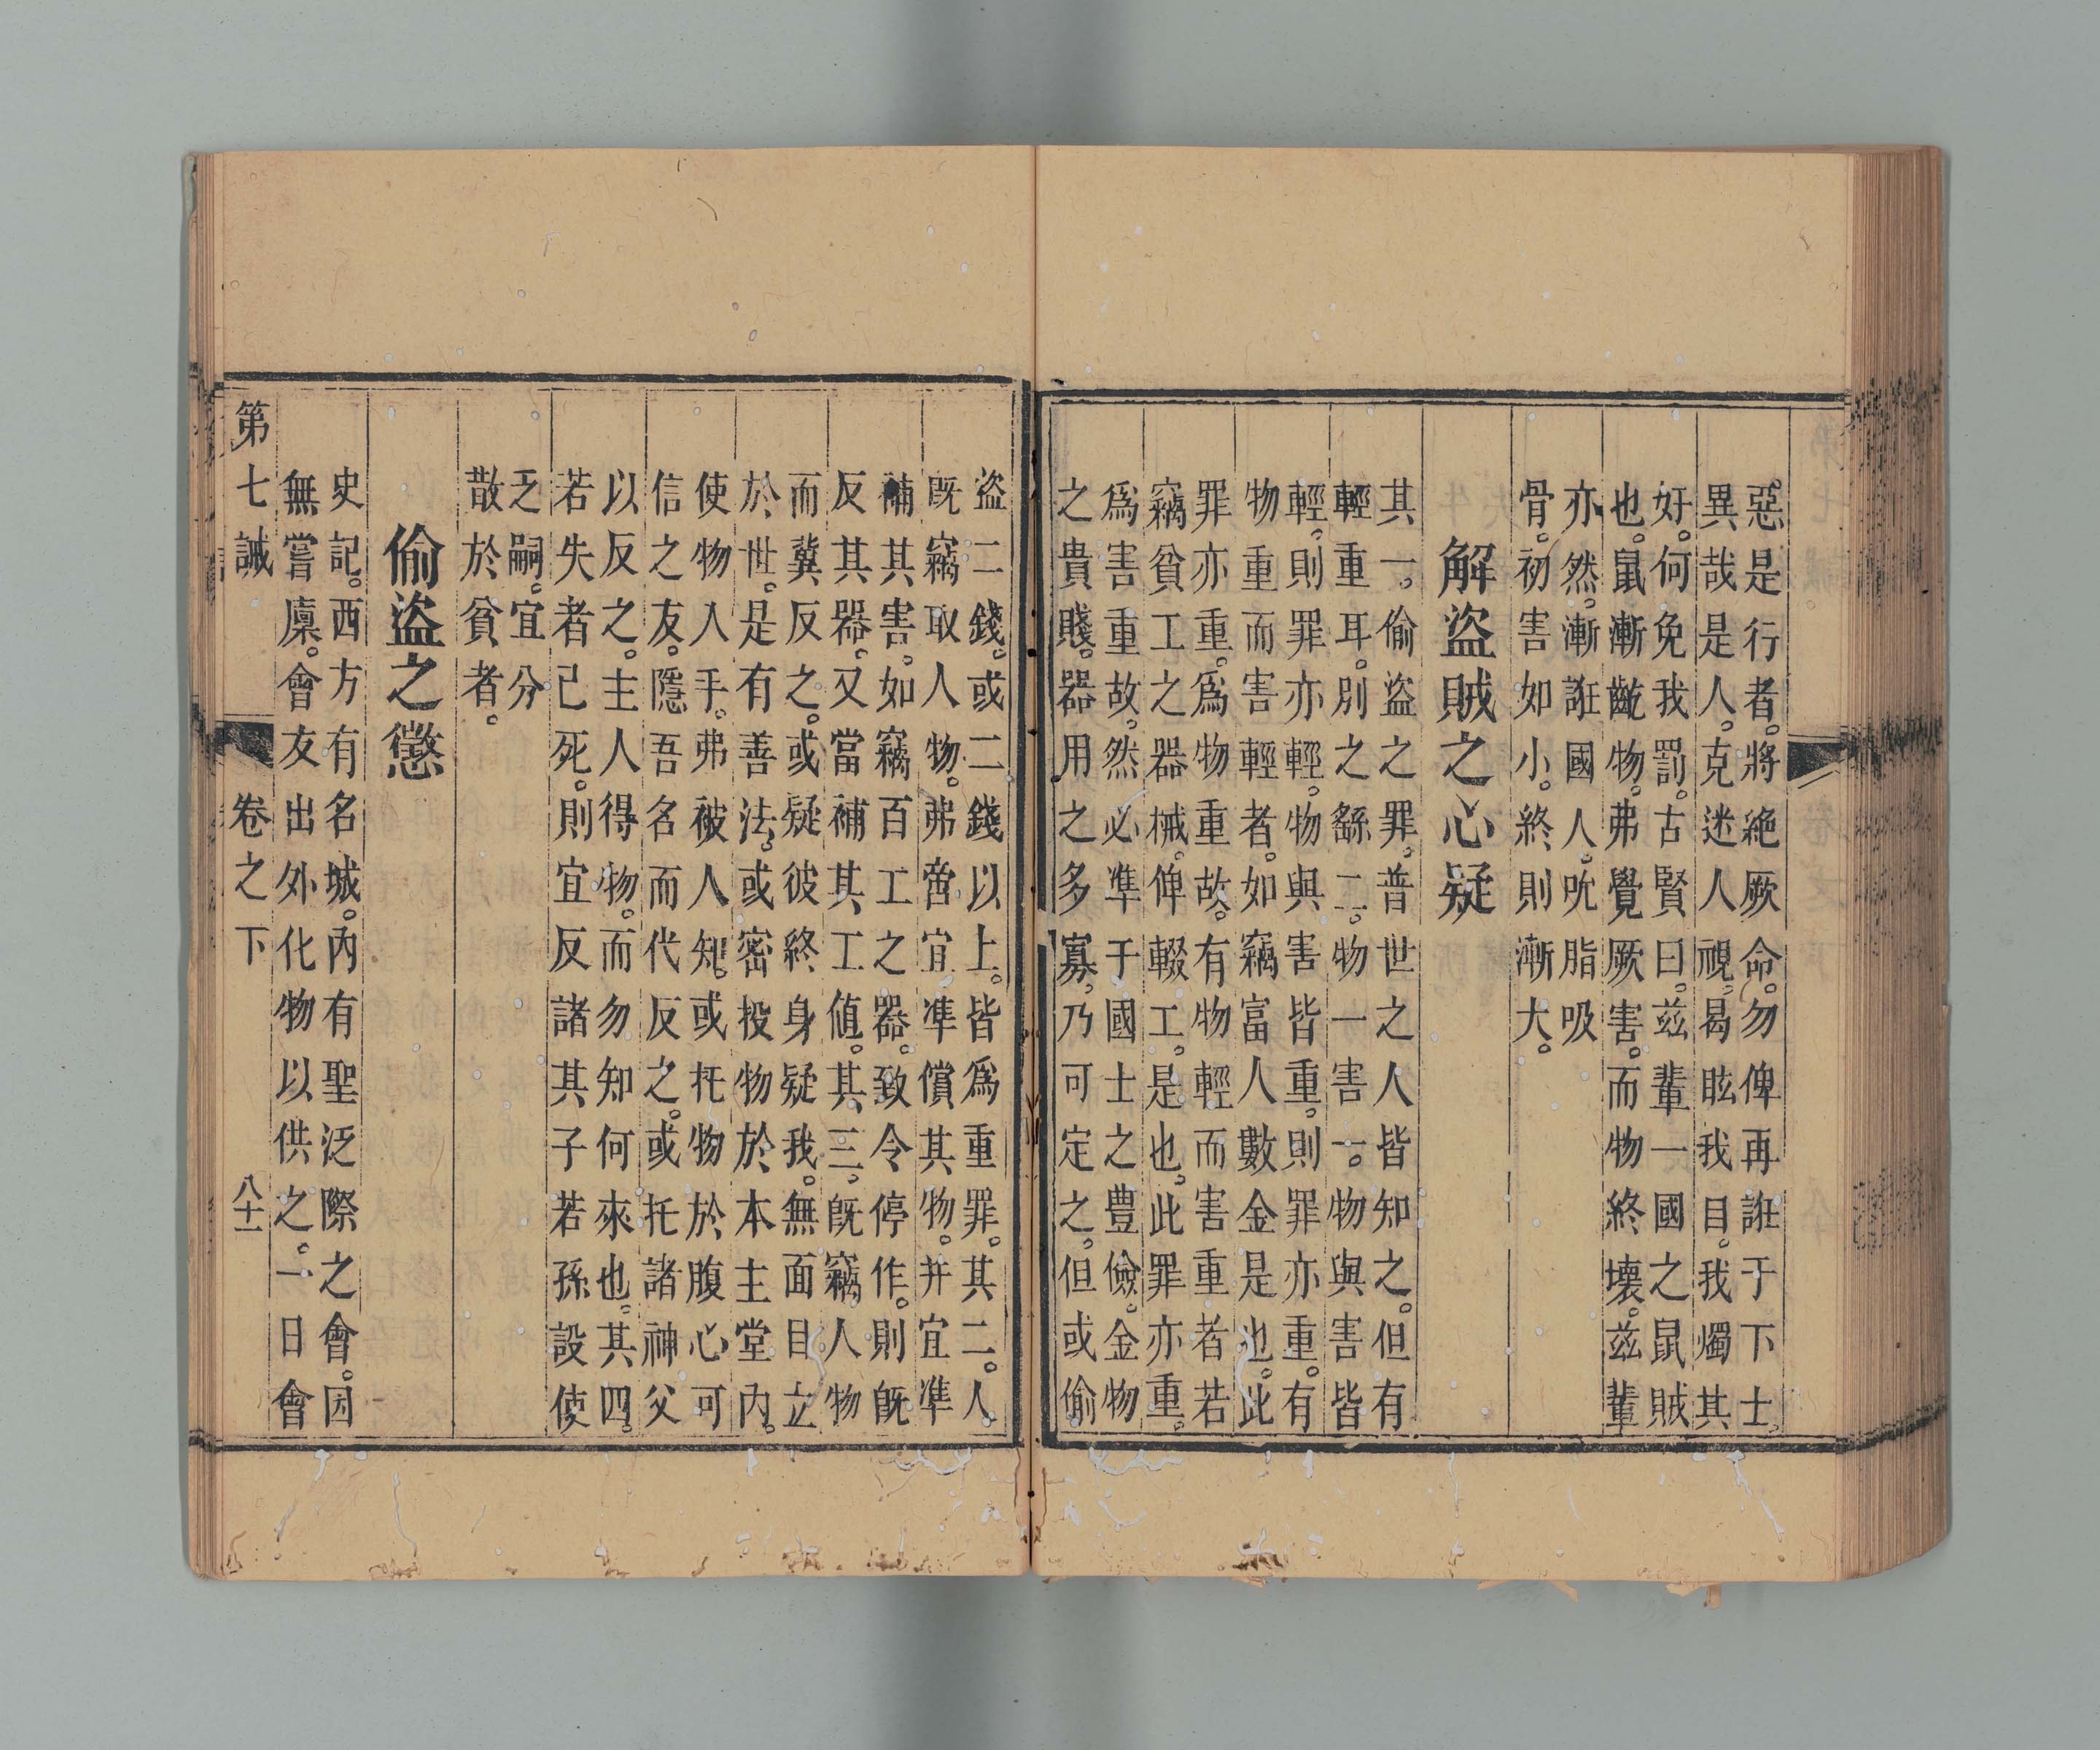 惡。是行者。將絕厥命。勿俾再誑于下士。
異哉是人。克迷人視。曷眩我目。我燭其
奸。何免我罰。古賢曰。茲輩一國之鼠賊
也。鼠漸齕物。弗覺厥害。而物終壞。茲輩
亦然。漸誑國人。吮脂吸
骨。初害如小。終則漸大。
解盜賊之心疑
其一。偷盜之罪。普世之人皆知之。但有
輕重耳。別之繇二。物一害一。物與害皆
輕。則罪亦輕。物與害皆重。則罪亦重。有
物重而害輕者。如竊富人數金是也。此
罪亦重。爲物重故。有物輕而害重者若
竊貧工之器械。俾輟工。是也。此罪亦重。
爲害重故。然必準于國士之豊儉。金物
之貴賤。器用之多寡。乃可定之。但或偷
盜二錢。或二錢以上。皆爲重罪。其二。人
既竊取人物。弗啻宜準償其物。并宜準
補其害。如竊百工之器。致令停作。則既
反其器。又當補其工値。其三。既竊人物
而冀反之。或疑彼終身疑我。無面目立
於世。是有善法。或密投物於本主堂內。
使物入手。弗被人知。或托物於腹心可
信之友。隱吾名而代反之。或托諸神父
以反之。主人得物。而勿知何來也。其四。
若失者己死。則宜反諸其子若孫設使
乏嗣。宜分
散於貧者。
偷盜之懲
史記。西方有名城。內有聖泛際之會。因
無嘗廩。會友出外化物以供之。一日會
第七誡 卷之下 八十一